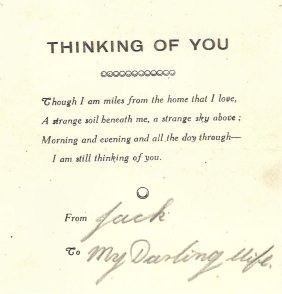 THINKING OF YOU
Though I am miles from the home that I love,
A strange soil beneath me, a strange sky above;
Morning and evening and all the day through—
I am still thinking of you.
From Jack
To My Darling Wife.